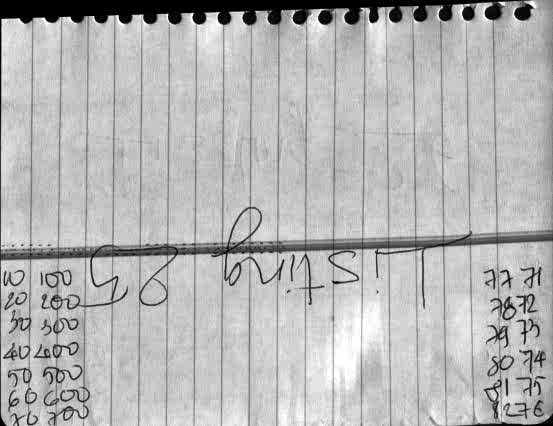 Listing 85
10 100
20 200
30 300
40 400
50 500
60 600
70 700
77 71
78 72
79 73
80 74
81 75
82 76